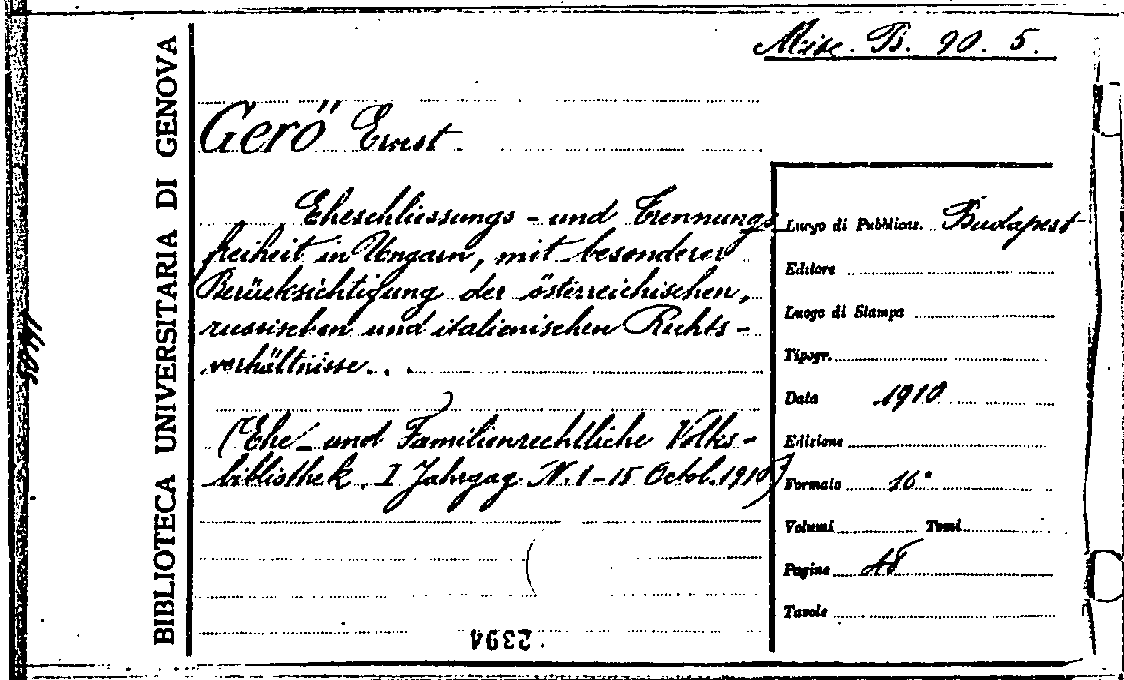 Misc. B. 90. 5.
BIBLIOTECA UNIVERSITARIA DI GENOVA
Gerö Ernst.
Eheschliessungs - und Trennungs
freiheit in Ungarn, mit besonderer
Berücksichtigung der österreichischen,
russischen und italienischen Rechts-
verhältnisse...
(Ehe - und Familienrechtliche Volks-
bibliothek. I Jahrgag. N. 1 - 15 Octob. 1910)
Luogo di Pubblicaz. Budapest
Editore
Luogo di Stampa
Tipogr.
Data 1910
Edizione
Formato 16°
Volumi Tomi
Pagine 48
Tavole
2394